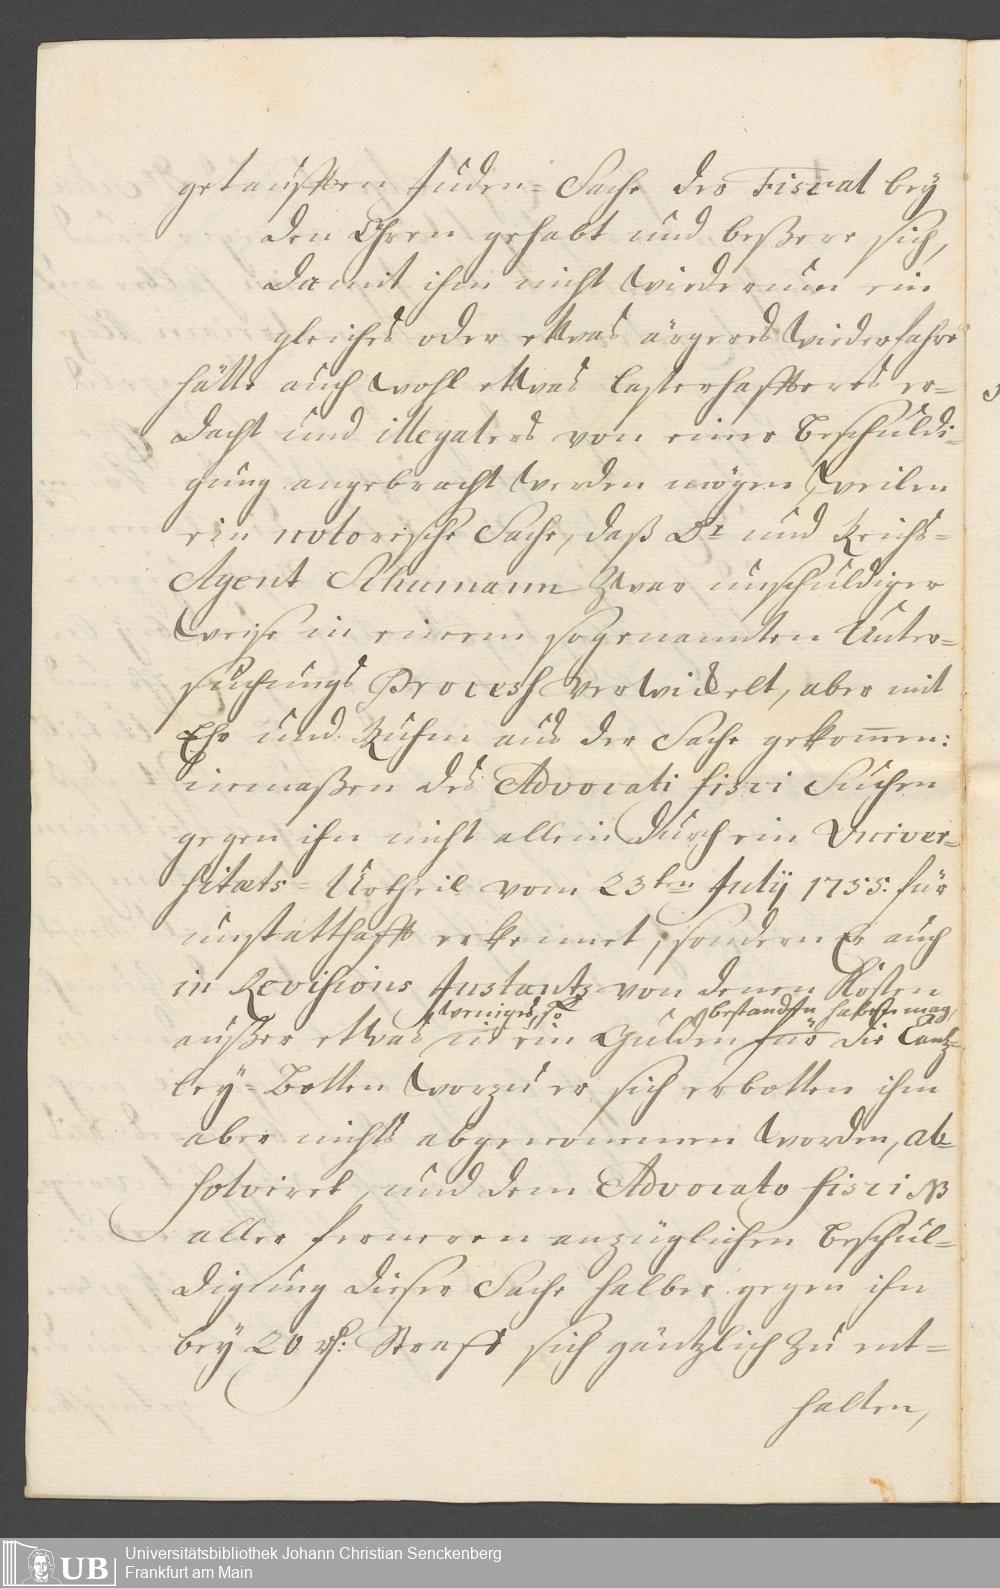 getaufften Juden-Sache des Fiscal bey
den Ohren gehabt und beßere sich,
damit ihm nicht wiederum ein
gleiches oder etwas ärgeres wiederfahre
hätte auch wohl etwas lasterhaffteres er-
dacht und illegalers von einer Beschuldi-
gung angebracht werden mögen, weilen
ein notorische Sache, daß Dr und Reichs-
Agent Schumann zwar unschuldiger
weise in einem sogenannten Unter-
suchungs Process verwickelt, aber mit
Ehr und Ruhm aus der Sache gekommen:
immaßen des Advocati fisci Suchen
gegen ihn nicht allein durch ein Univer-
sitæts-Urtheil vom 23ten Julij 1755. für
unstatthafft erkennet, sondern Er auch
in Revisions Instantz von denen Kosten
weniges, so bestanden haben mag,
außer etwas in ein Gulden für die Cantz-
ley-Botten worzu er sich erbotten ihm
aber nichts abgenommen worden, ab-
solviret, und dem Advocato fisci NB
aller ferneren anzüglichen Beschul-
digung dieser Sache halber gegen ihn
bey 20 rh: Straff sich gäntzlich zu ent-
halten,
UB
Universitätsbibliothek Johann Christian Senckenberg
Frankfurt am Main